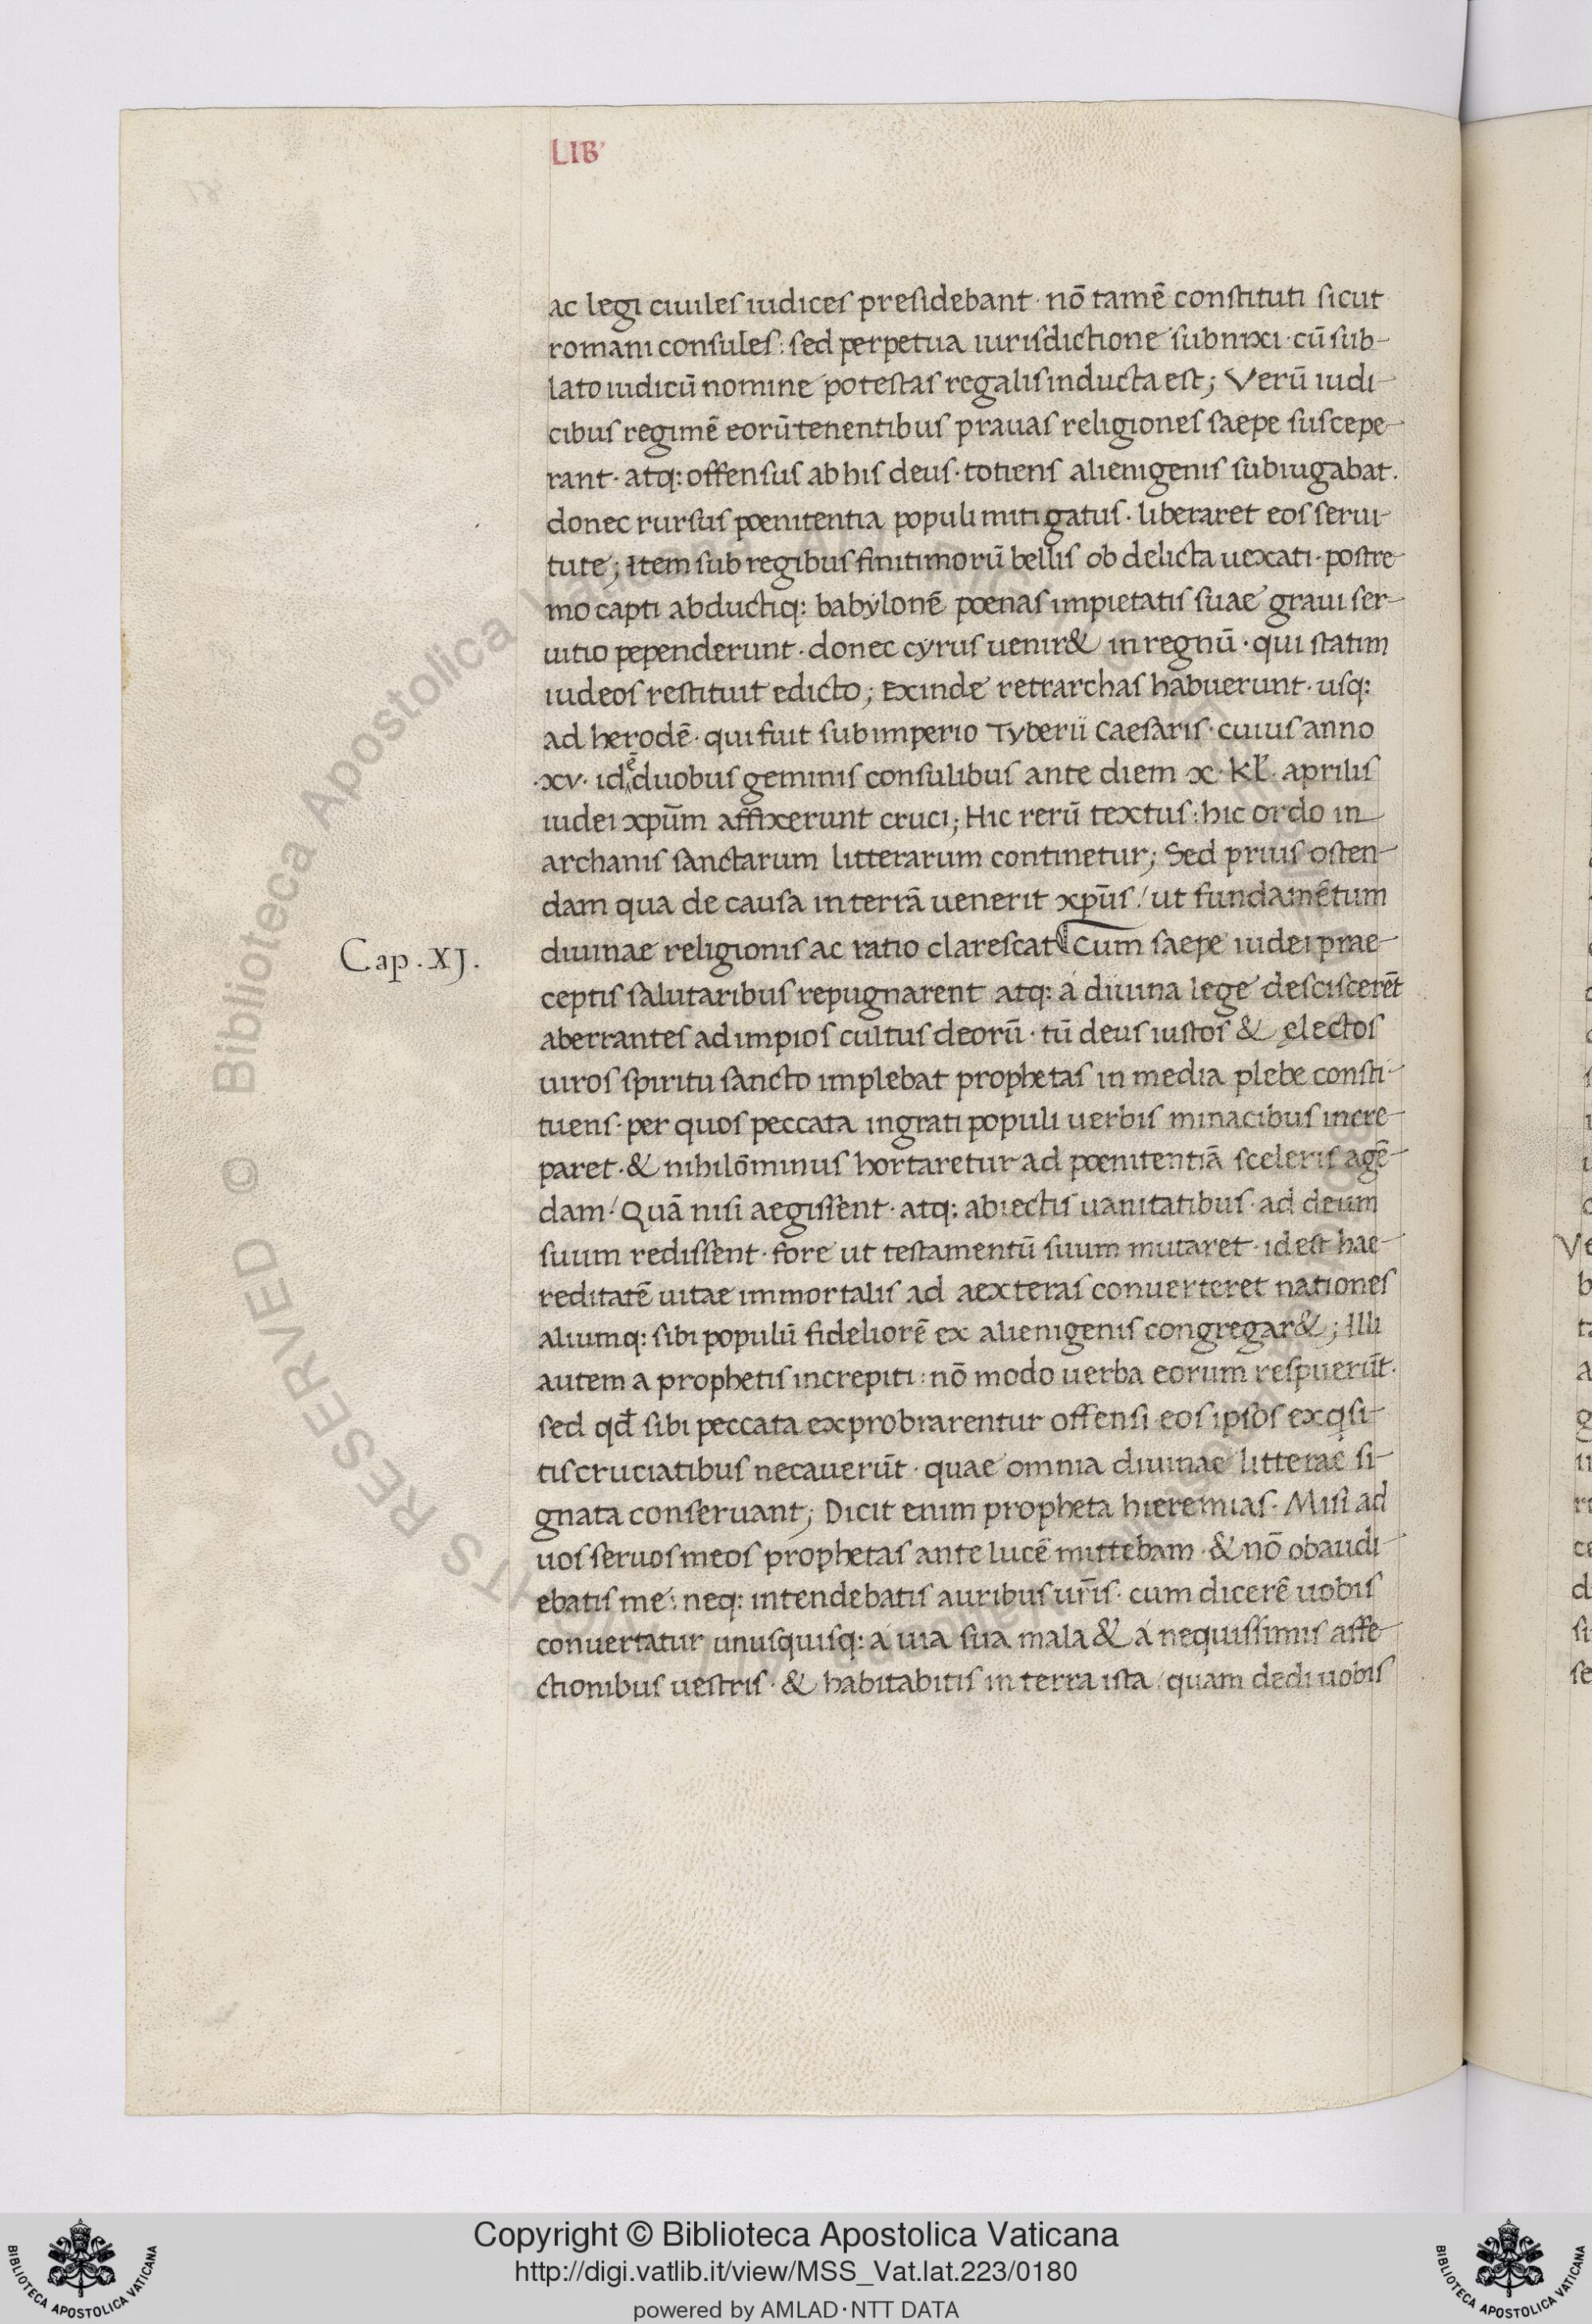 LIB'
ac legi ciuiles iudices presidebant · nō tamē constituti sicut
romani consules : sed perpetua iurisdictione subnixi · cū sub-
lato iudicū nomine potestas regalis inducta est ; Verū iudi-
cibus regimē eorū tenentibus prauas religiones saepe suscepe-
rant · atq: offensus ab his deus · totiens alienigenis subiugabat .
donec rursus poenitentia populi mitigatus · liberaret eos serui-
tute ; Item sub regibus finitimorū bellis ob delicta uexati · postre-
mo capti abductiq: babylonē poenas impietatis suae graui ser-
uitio pependerunt · donec cyrus uenir& in regnū · qui statim
iudeos restituit edicto ; Exinde retrarchas habuerunt · usq:
ad herodē · qui fuit sub imperio Tyberii Caesaris · cuius anno
·xv· id ē duobus geminis consulibus ante diem x · kl · aprilis
iudei xpūm affixerunt cruci ; Hic rerū textus : hic ordo in
archanis sanctarum litterarum continetur ; Sed prius osten-
dam qua de causa in terrā uenerit xpūs / ut fundamētum
Cap . XJ .
diuinae religionis ac ratio clarescat ¶ Cum saepe iudei prae-
ceptis salutaribus repugnarent atq: á diuina lege desciscerēt
aberrantes ad impios cultus deorū · tū deus iustos & electos
uiros spiritu sancto implebat prophetas in media plebe consti-
tuens · per quos peccata ingrati populi uerbis minacibus incre-
paret · & nihilōminus hortaretur ad poenitentiā sceleris agē-
dam / Quā nisi aegissent · atq: abiectis uanitatibus · ad deum
suum redissent · fore ut testamentū suum mutaret · id est hae-
reditatē uitae immortalis ad aexteras conuerteret nationes
aliumq: sibi populū fideliorē ex alienigenis congregar& ; Illi
autem a prophetis increpiti : nō modo uerba eorum respuerūt ·
sed qđ sibi peccata exprobrarentur offensi eos ipsos exqsi-
tis cruciatibus necauerūt · quae omnia diuinae litterae si-
gnata conseruant ; Dicit enim propheta hieremias · Misi ad
uos seruos meos prophetas ante lucē mittebam · & nō obaudi-
ebatis me : neq: intendebatis auribus urīs · cum dicerē uobis
conuertatur unusquisq: á uia sua mala & á nequissimis affe-
ctionibus uestris · & habitabitis in terra ista / quam dedi uobis
Copyright © Biblioteca Apostolica Vaticana
http://digi.vatlib.it/view/MSS_Vat.lat.223/0180
powered by AMLAD·NTT DATA